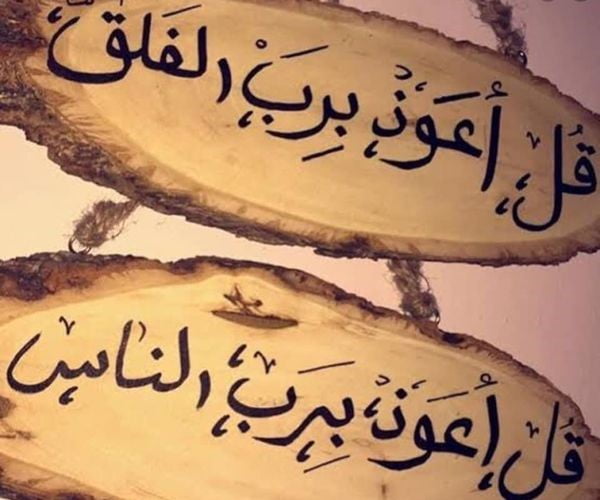 قل أعوذ برب الفلق
قل أعوذ برب الناس